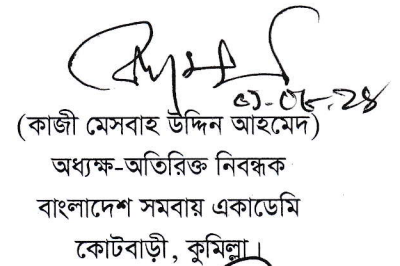 (কাজী মেসবাহ উদ্দিন আহমেদ)
অধ্যক্ষ-অতিরিক্ত নিবন্ধক
বাংলাদেশ সমবায় একাডেমি
কোটবাড়ী, কুমিল্লা।